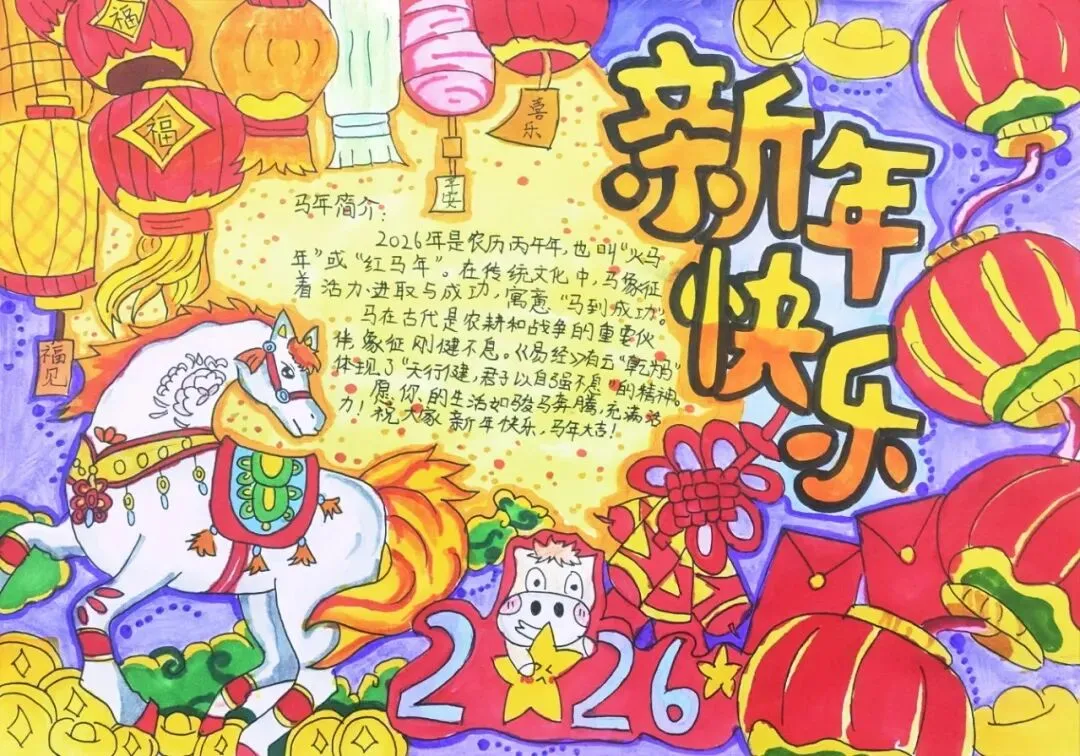 福
福
喜乐
平安
福见
新年快乐
马年简介:
2026年是农历丙午年,也叫“火马
年”或“红马年”。在传统文化中,马象征
着活力进取与成功,寓意“马到成功”。
马在古代是农耕和战争的重要伙
伴,象征刚健不息。《易经》有云“乾为马”
体现了“天行健,君子以自强不息”的精神。
愿你的生活如骏马奔腾,充满活
力!祝大家新年快乐,马年大吉!
2026